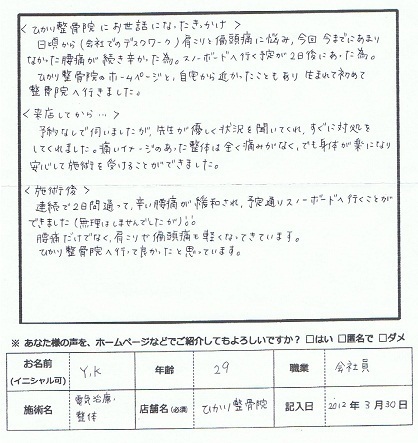 <ひかり整骨院にお世話になったきっかけ>
日頃から(会社でのデスクワーク)肩こりと偏頭痛に悩み、今回今までにあまり
なかった腰痛が続き辛かった為。スノーボードへ行く予定が2日後にあった為。
ひかり整骨院のホームページと、自宅から近かったこともあり 生まれて初めて
整骨院へ行きました。
<来店してから…>
予約なしで伺いましたが、先生が優しく状況を聞いてくれ、すぐに対処を
してくれました。痛いイメージのあった整体は全く痛みがなく、でも身体が楽になり
安心して施術を受けることができました。
<施術後>
連続で2日間通って、辛い腰痛が緩和され、予定通りスノーボードへ行くことが
できました(無理はしませんでしたが)!!
腰痛だけでなく、肩こりや偏頭痛も軽くなってきています。
ひかり整骨院へ行って良かったと思っています。
※ あなた様の声を、ホームページなどでご紹介してもよろしいですか? □はい □匿名で □ダメ
お名前 (イニシャル可) Y.K 年齢 29 職業 会社員
施術名 電気治療・整体 店舗名(必須) ひかり整骨院 記入日 2012年3月30日